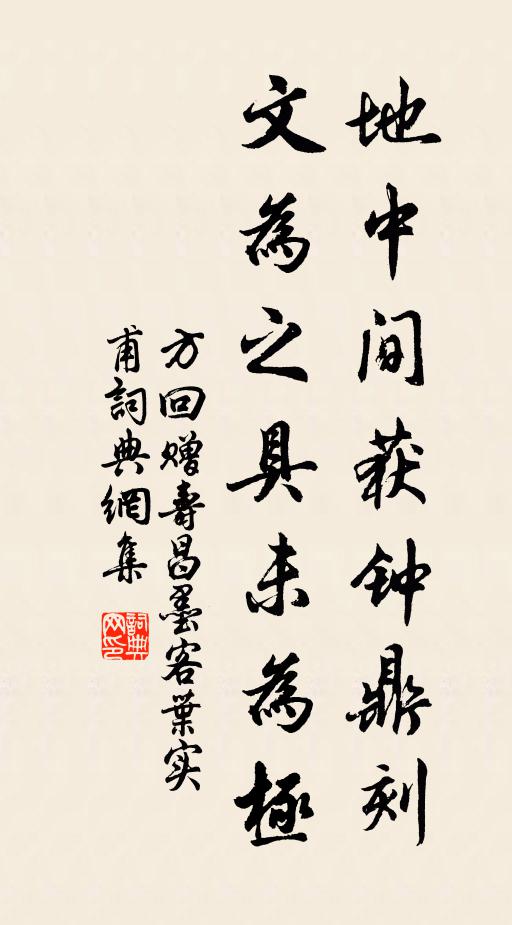 地中间获钟鼎刻
文為之具未為極
方回赠壽昌墨客葉实
甫詞典網集
詞典网印